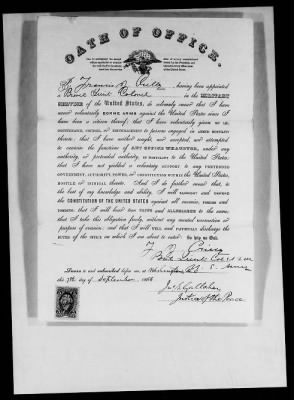 OATH OF OFFICE.
I, Francis D.
having been appointed
Brevet Lieut Colonel
in the MILITARY
SERVICE of the United States, do solemnly swear that I have
never voluntarily BORNE ARMS against the United States since I
have been a citizen thereof; that I have voluntarily given no AID,
COUNTENANCE, COUNSEL, or ENCOURAGEMENT to persons engaged in ARMED HOSTILITY
thereto; that I have neither sought, nor accepted, nor attempted
to exercise the functions of ANY OFFICE WHATEVER, under any
authority, or pretended authority, in HOSTILITY to the United States;
that I have not yielded a voluntary support to any PRETENDED
GOVERNMENT, AUTHORITY, POWER, or CONSTITUTION within the UNITED STATES,
HOSTILE or INIMICAL thereto. And I do further swear that, to
the best of my knowledge and ability, I will SUPPORT and DEFEND
the CONSTITUTION OF THE UNITED STATES against all enemies, FOREIGN and
DOMESTIC; that I will bear TRUE FAITH and ALLEGIANCE to the same;
that I take this obligation freely, without any mental reservation or
purpose of evasion; and that I will WELL and FAITHFULLY discharge the
DUTIES of the OFFICE on which I am about to enter: So help me God.
Sworn to and subscribed before me, at Washington
this 7th day of September 1866
Jno S. Gallaher
Justice of the Peace